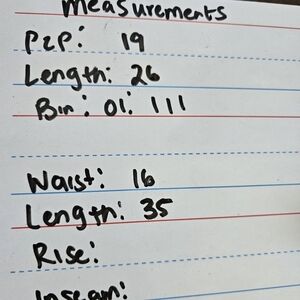 Measurements
P2P: 19
Length: 26
Bin: 01: 111
Waist: 16
Length: 35
Rise:
Inseam: